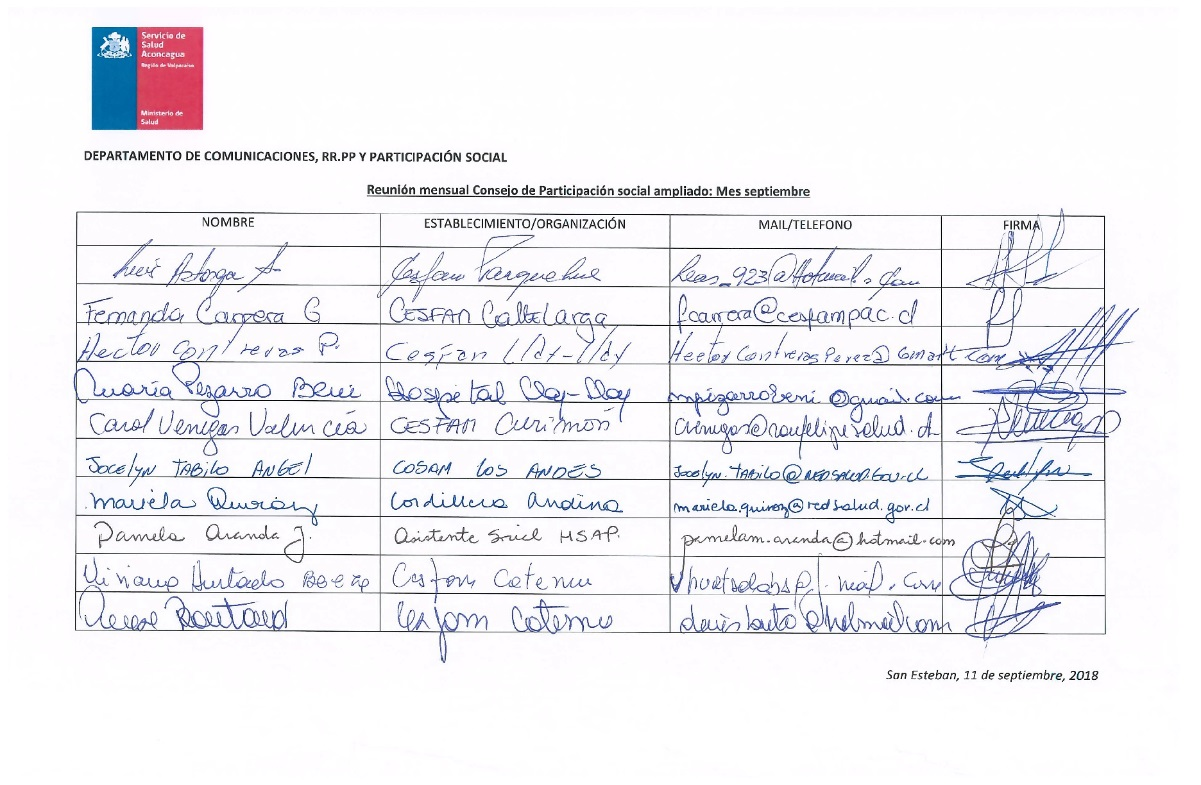 Servicio de
Salud
Aconcagua
Región de Valparaíso
Ministerio de
Salud
DEPARTAMENTO DE COMUNICACIONES, RR.PP Y PARTICIPACIÓN SOCIAL
Reunión mensual Consejo de Participación social ampliado: Mes septiembre
NOMBRE ESTABLECIMIENTO/ORGANIZACIÓN MAIL/TELEFONO FIRMA
Astorga A Cesfam Panquehue
Fernanda Carrera G CESFAM Calle Larga fcarrera@cesfampac.cl
Hector Contreras P. Cesfan Llay-Llay Hector Contreras Perez@Gmail.Com
María Pizarro Beni Hospital Llay-Llay mpizarrobeni@gmail.com
Carol Venegas Valencia CESFAM Curimón cvenegas@sanfelipesalud.cl
JOCELYN TABILO ANGEL COSAM LOS ANDES JOCELYN.TABILO@REDSALUD.GOV.CL
Mariela Quiroz Cordillera Andina mariela.quiroz@redsalud.gov.cl
Pamela Aranda J. Asistente Social HSAP. pamelam.aranda@hotmail.com
Viviana Hurtado Cesfam Catemu
Cesfam Catemu
San Esteban, 11 de septiembre, 2018